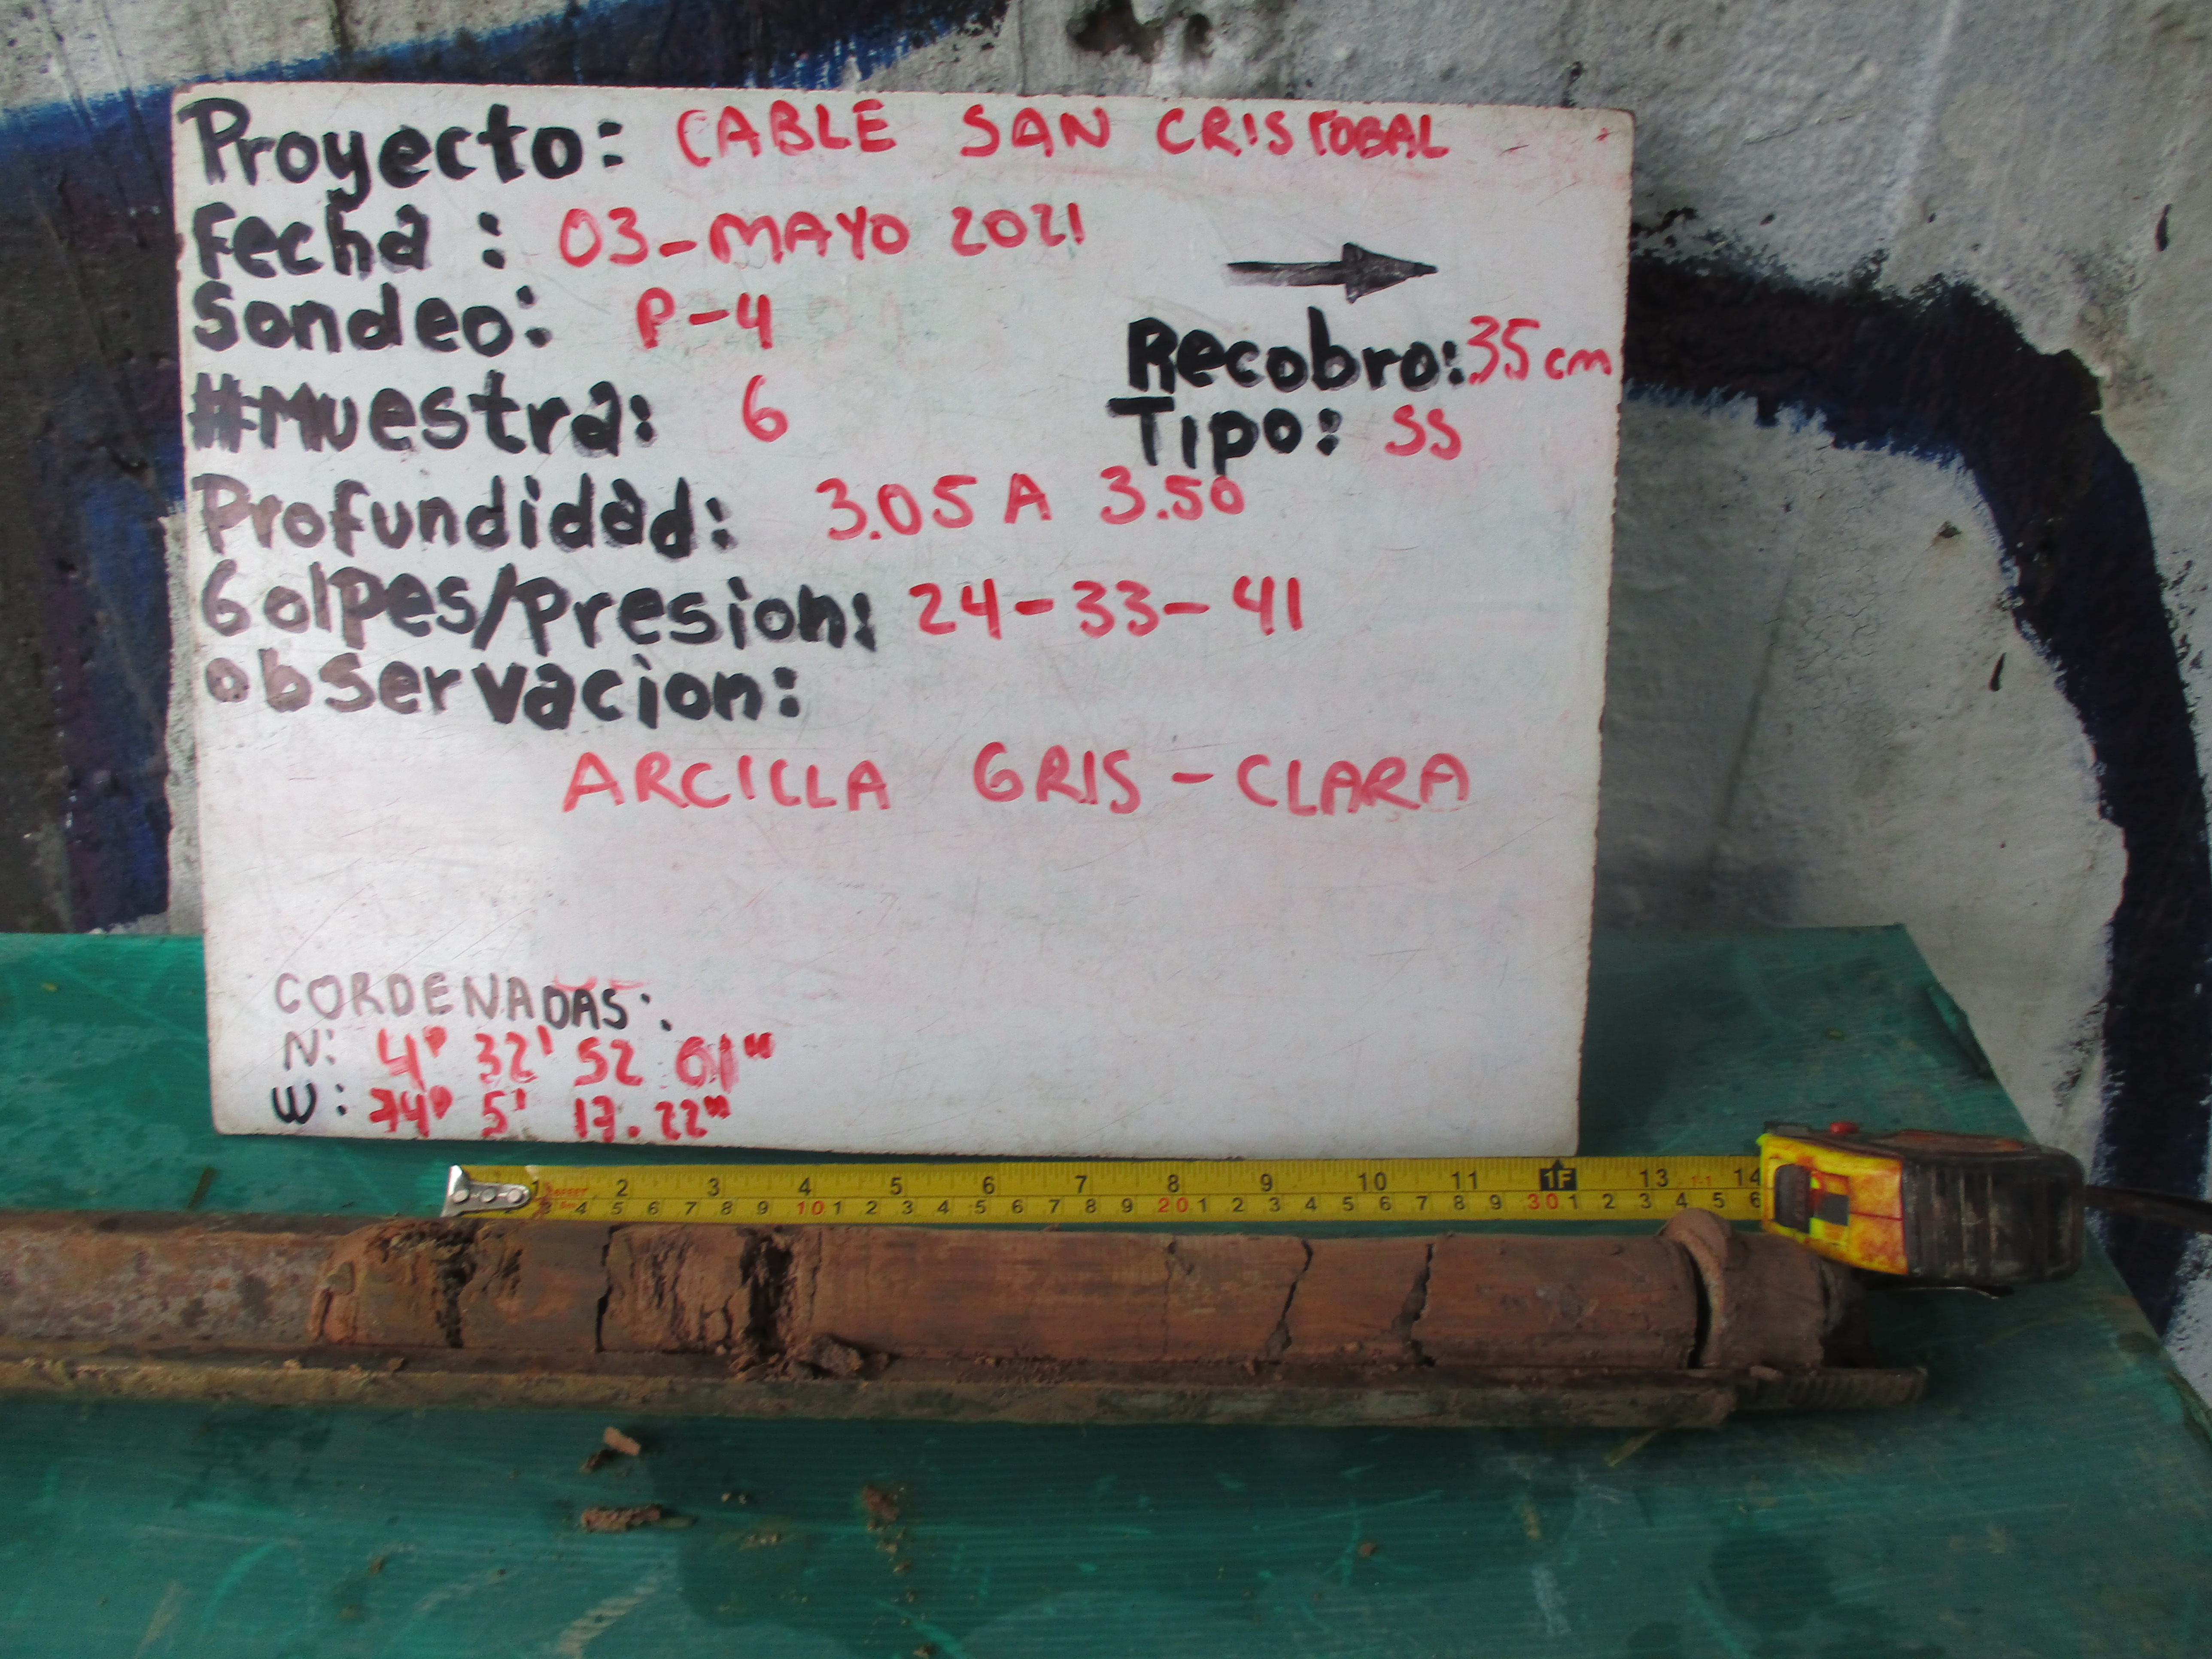 Proyecto: CABLE SAN CRISTOBAL
Fecha : 03-MAYO 2021
Sondeo: P-4
Recobro: 35 cm
#Muestra: 6
Tipo: SS
Profundidad: 3.05 A 3.50
Golpes/Presion: 24-33-41
observacion:
ARCILLA GRIS-CLARA
CORDENADAS:
N: 4° 32' 52 01"
W: 74° 5' 17.22"
1 2 3 4 5 6 7 8 9 10 11 1F 13 14
3 4 5 6 7 8 9 10 1 2 3 4 5 6 7 8 9 20 1 2 3 4 5 6 7 8 9 30 1 2 3 4 5 6